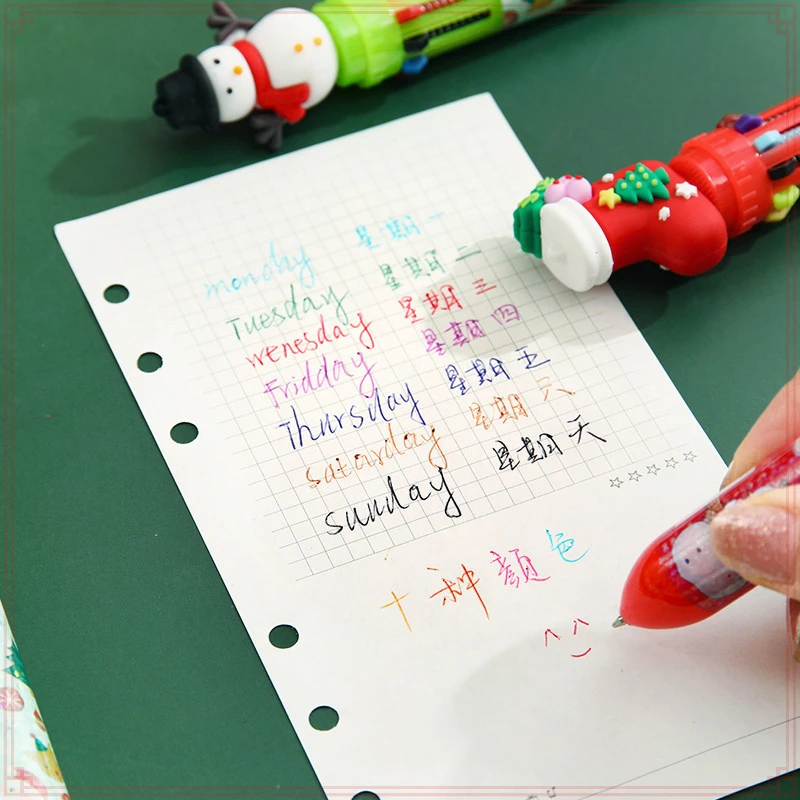 monday 星期一
Tuesday 星期二
wenesday 星期三
Fridday 星期四
Thursday 星期五
saturday 星期六
sunday 星期天
☆☆☆☆☆
十种颜色
^ ^